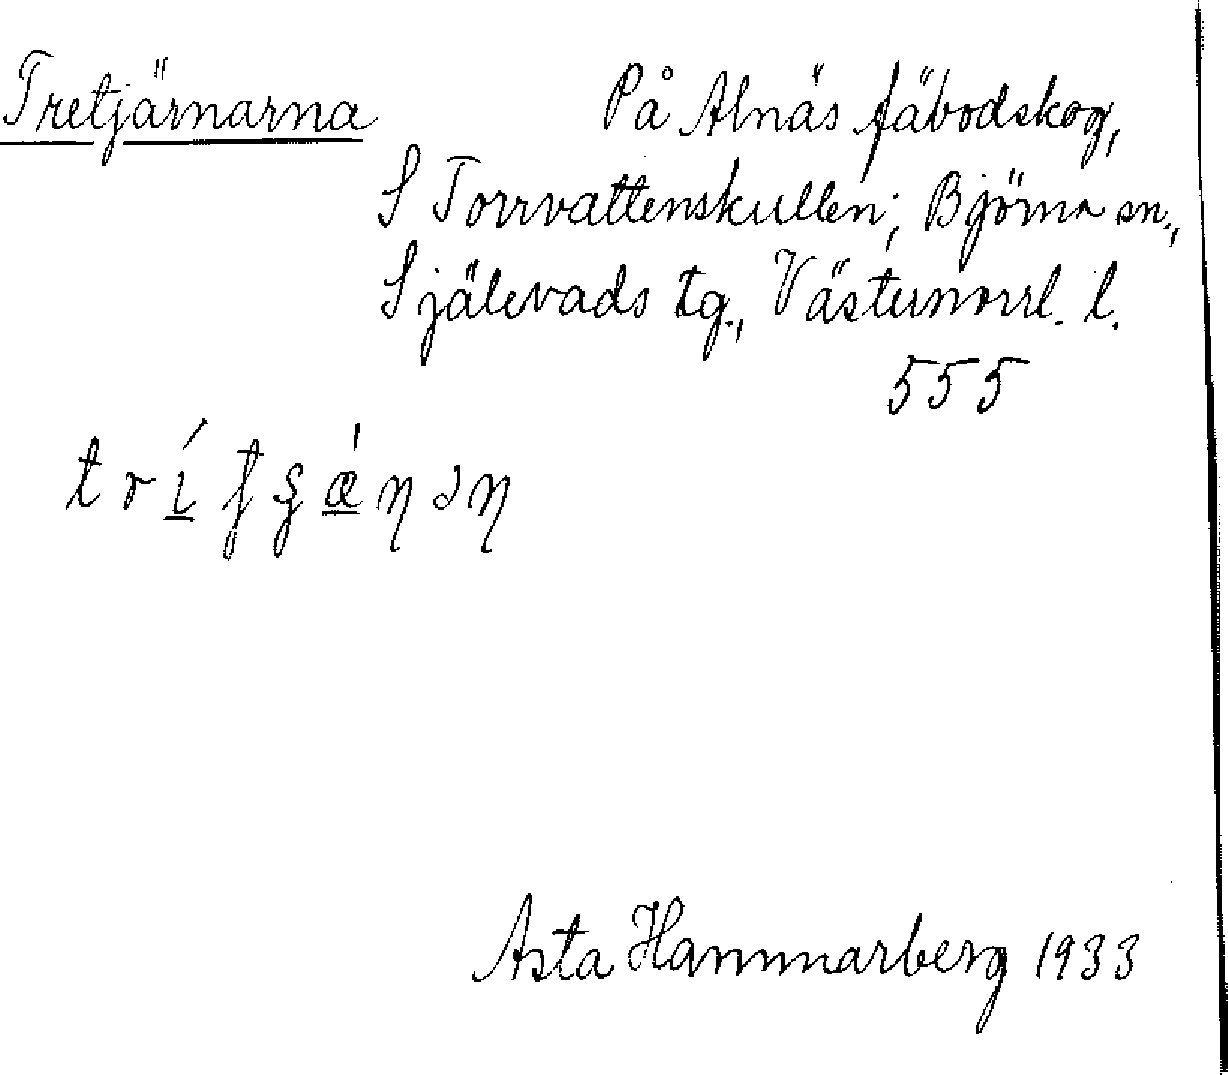 Tretjärnarna
På Alnäs fäbodskog,
S Torrvattenskullen; Björna sn.,
Själevads tg., Västernorrl. l.
555
Asta Hammarberg 1933